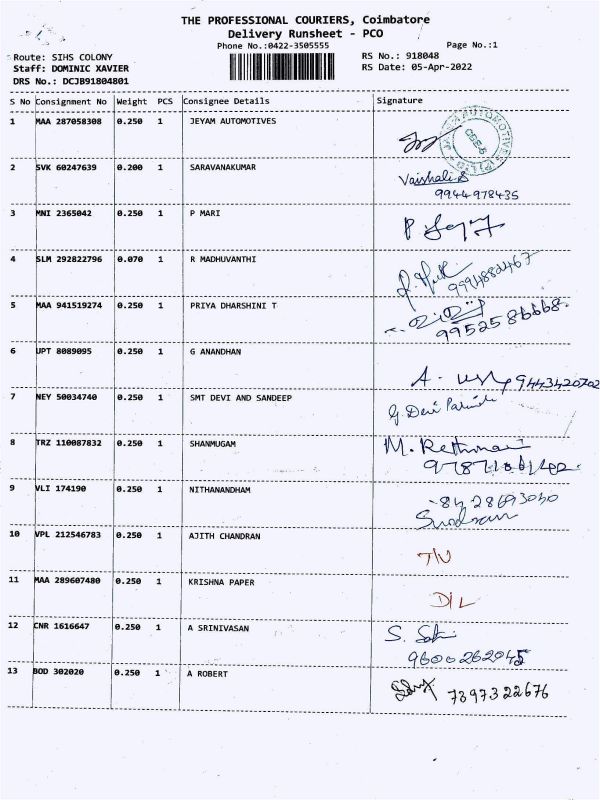 THE PROFESSIONAL COURIERS, Coimbatore
Delivery Runsheet - PCO
Phone No.:0422-3505555
Page No.:1
Route: SIHS COLONY
RS No.: 918048
Staff: DOMINIC XAVIER
RS Date: 05-Apr-2022
DRS No.: DCJB91804801
S No Consignment No Weight PCS Consignee Details Signature
1 MAA 287058308 0.250 1 JEYAM AUTOMOTIVES
2 SVK 60247639 0.200 1 SARAVANAKUMAR
Vaishali S
9944978435
3 MNI 2365042 0.250 1 P MARI
4 SLM 292822796 0.070 1 R MADHUVANTHI
9994882467
5 MAA 941519274 0.250 1 PRIYA DHARSHINI T
9952586668.
6 UPT 8089095 0.250 1 G ANANDHAN
9443420702
7 NEY 50034740 0.250 1 SMT DEVI AND SANDEEP
G. Devi
8 TRZ 110087832 0.250 1 SHANMUGAM
9 VLI 174190 0.250 1 NITHANANDHAM
10 VPL 212546783 0.250 1 AJITH CHANDRAN
11 MAA 289607480 0.250 1 KRISHNA PAPER
D/L
12 CNR 1616647 0.250 1 A SRINIVASAN
9600262045
13 BOD 302020 0.250 1 A ROBERT
7397322676